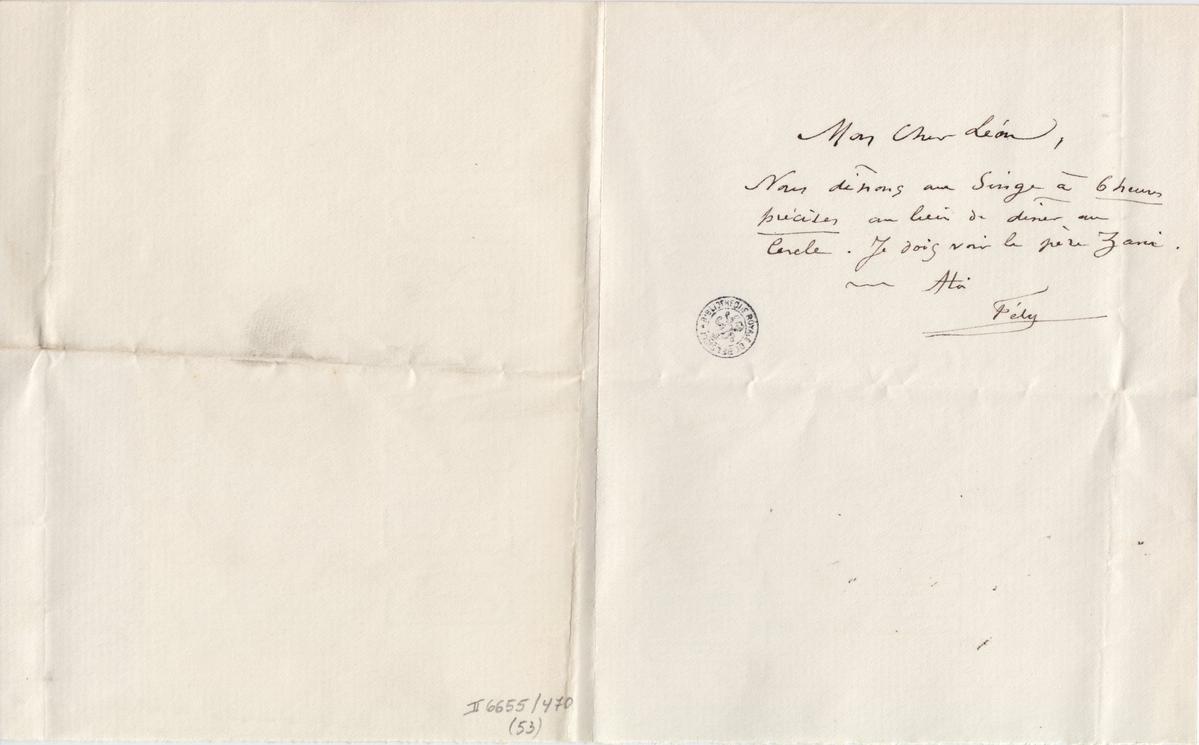 Mon Cher Léon,
Nous dînons au Singe à 6 heures
précises au lieu de dîner au
Cercle. Je dois voir le père Zani.
A toi
Fély
BIBLIOTHÈQUE ROYALE DE BELGIQUE
II 6655/470
(53)